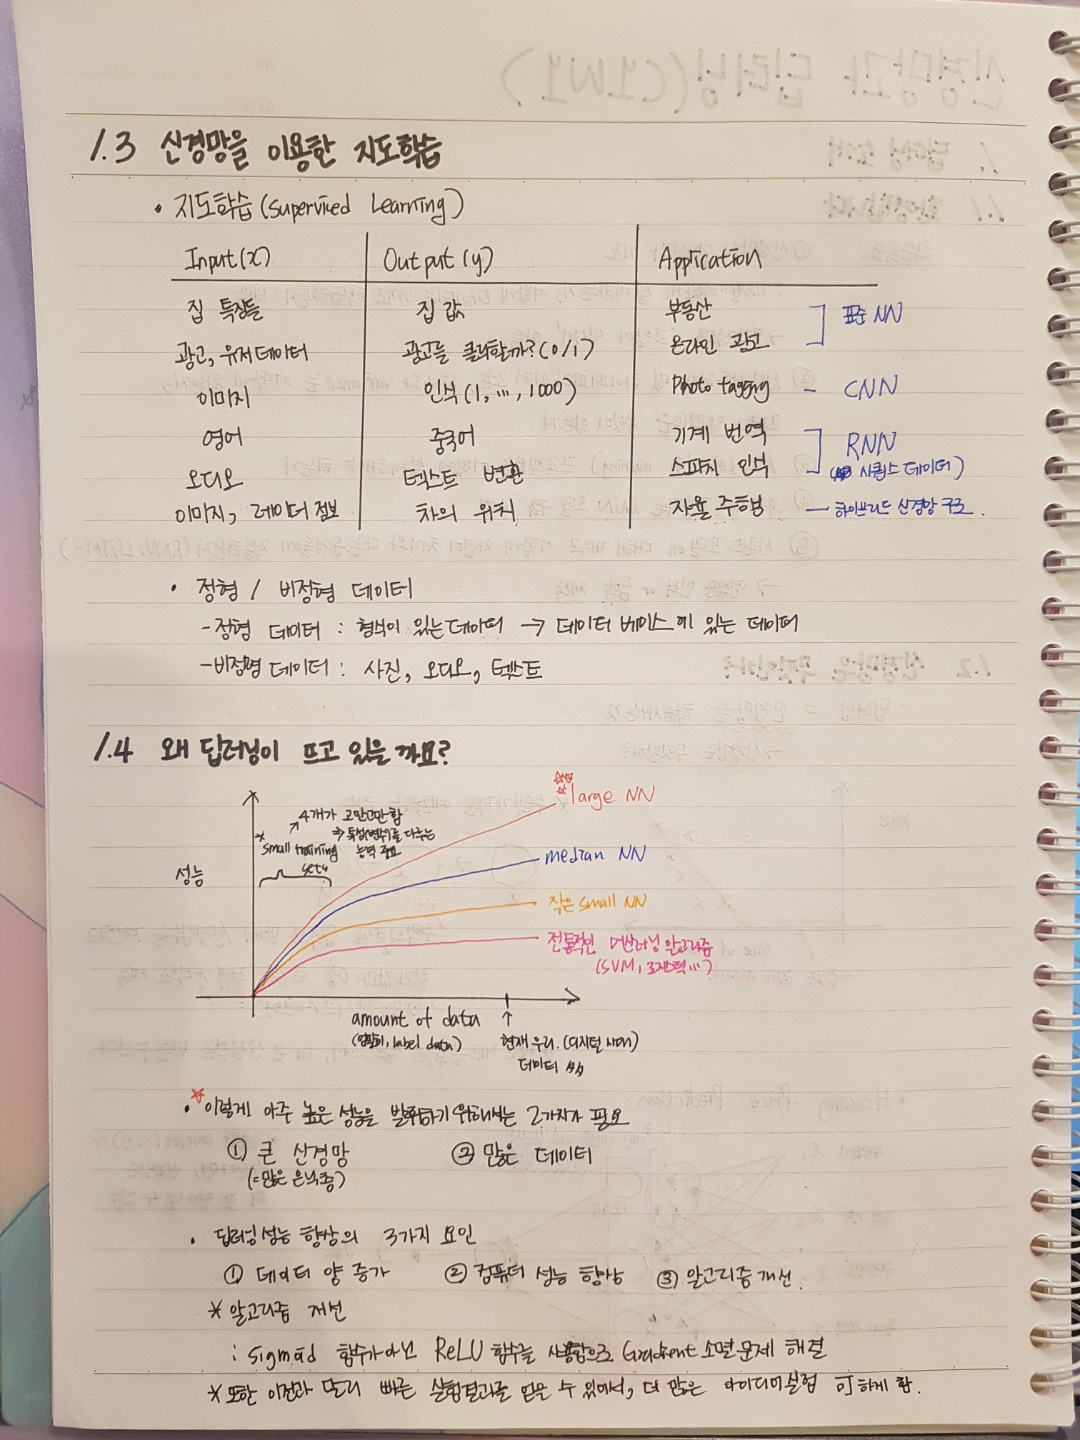 1.3 신경망을 이용한 지도학습
• 지도학습 (Supervised Learning)
Input(x) Output(y) Application
집 특징들 집 값 부동산 표준 NN
광고, 유저데이터 광고를 클릭할까? (0/1) 온라인 광고
이미지 인식(1, ..., 1000) Photo tagging - CNN
영어 중국어 기계 번역 RNN
오디오 텍스트 변환 스피치 인식 (시퀀스 데이터)
이미지, 레이더 정보 차의 위치 자율 주행 - 하이브리드 신경망 구조.
• 정형 / 비정형 데이터
- 정형 데이터 : 형식이 있는 데이터 → 데이터 베이스에 있는 데이터
- 비정형 데이터 : 사진, 오디오, 텍스트
1.4 왜 딥러닝이 뜨고 있을까요?
large NN
↗ 4개가 고만고만함
⇒ 특성(변수)를 다루는
능력 중요
* small training
sets
median NN
성능
작은 small NN
전통적인 머신러닝 알고리즘
(SVM, 로지스틱 ...)
amount of data
(정확히, label data)
↑
현재 우리. (디지털 시대)
데이터
• 이렇게 아주 높은 성능을 발휘하기 위해서는 2가지가 필요
① 큰 신경망 ② 많은 데이터
(=많은 은닉층)
• 딥러닝 성능 향상의 3가지 요인
① 데이터 양 증가 ② 컴퓨터 성능 향상 ③ 알고리즘 개선.
* 알고리즘 개선
: Sigmoid 함수가 아닌 ReLU 함수를 사용함으로 Gradient 소멸 문제 해결
* 또한 이전과 달리 빠른 실험결과를 얻을 수 있어서, 더 많은 아이디어 실험 可하게 함.